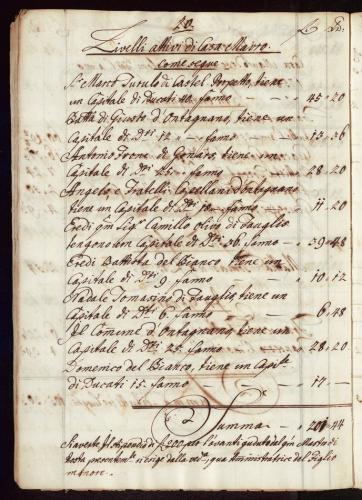 20.
Livelli attivi di Casa Mauro
come segue
L. D.
Sr. Marco Turulo di Castel Propetto, tiene
un Capitale di Ducati 40. fanno — 45.20
Betta di Giusto d'Ontagnano, tiene un
Capitale di Dti. 12. — fanno — 13.36
Antonio di Gonaro, tiene un
Capitale di Dti. 25. — fanno — 28.20
Angelo e Fratelli Castellani d'Ontagnano
tiene un Capitale di Dti. 10 — fanno — 11.20
Eredi qm. Sig. Camillo di Sauglio
tengono un Capitale di Dti. fanno — 39.48
Eredi Battista del Bianco, tiene un
Capitale di Dti. 9. fanno — 10.12
Nadale Tomasino di Sauglio, tiene un
Capitale di Dti. 6. fanno — 6.48
Il Comune d'Ontagnano, tiene un
Capitale di Dti. 25. fanno — 28.20
Domenico del Bianco, tiene un Capitle.
di Ducati 15. fanno — 17.—
Summa — 201.44
di 200 per l'avanti goduto dal qm. Mastro di
Posta presentemte. si esige dalla qua Aministratrice del Figlio
minore.